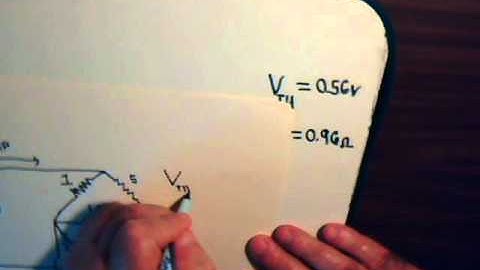 V_TH = 0.56V
= 0.96Ω
1
5
V_TH